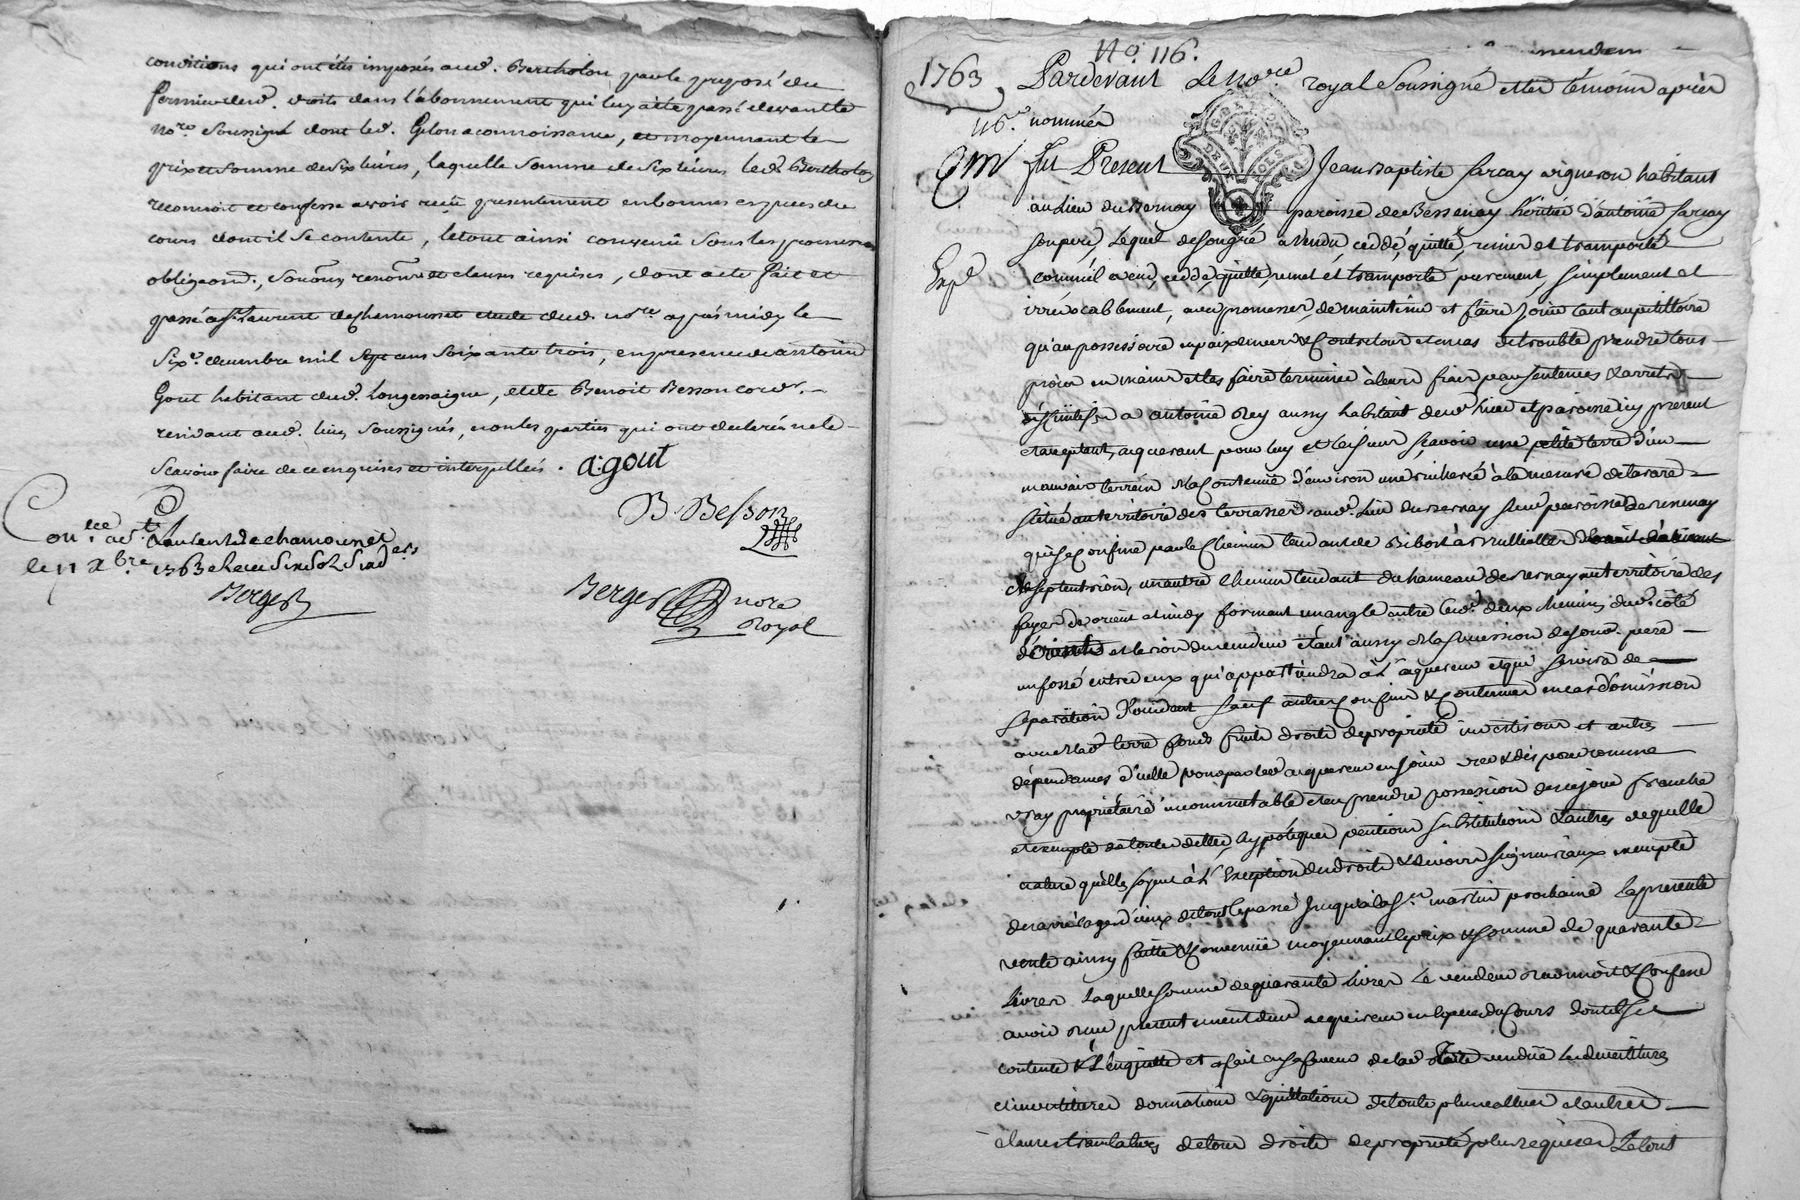 conditions qui ont étés imposés aud. Bertholon par le preposé du
fermier desd. droits dans l'abonnement qui luy a été passé devant le
No.re soussigné dont led. Gelon a connoissance, et moyennant le
prix et somme de six livres, laquelle somme de six livres led. Bertholon
reconnoit et confesse avoir reçüe presentement en bonnes especes du
cours dont il se contente, le tout ainsi convenû sous les promesses
obligeaons., soumons, renons. et clauses requises, dont acte fait et
passé a St. Laurent de Chamousset etude dud. no.re après midy le
six.e decembre mil sept cens soixante trois, en presence de antoine
Gout habitant dud. longessaigne, et de Benoit Besson cord.r
residant aud. lieu, soussignés, non les parties qui ont declaré ne le
scavoir faire de ce enquises et interpellés. a:gout
B Besson
Con.lee a St. Laurent de chamousset
le 11 xbre 1763 Reçu six sols six ders
Berger
Berger nore
Royal
No. 116.
1763 Pardevant Le No.re royal soussigné et les témoins après
116.e nommés
fut Present Jean Baptiste Sarcay vigneron habitant
GEN DE LYON
DEUX SOLS
au lieu du Bernay paroisse de Bessenay héritié d'antoine Sarcay
son pere, Lequel de son gré a vendu, ceddé, quitté, remis et transporté
Exp.é comme il vend, cedde, quitte, remet et transporte purement, simplement et
irrévocablement, avec promesse, de maintenir et faire joüir tant au petitoire
qu'au possessoire en paix envers & contre tous et en cas de trouble prendre tous
procès en mains et les faire terminer à leurs frais par sentences & arrets
a antoine Rey aussy habitant dud. lieu et paroisse icy present
et acceptant, acquerant pour luy et les siens, sçavoir une petite terre d'un
mauvais terrein de la contenuë d'environ une bicherée à la mesure de
situé au territoire des terrasses aud. lieu du Bernay susd. paroisse de Bessenay
qui se confine par le Chemin tendant de Ribost à
de septentrion, un autre chemin tendant du hameau de Bernay au territoire des
fayes d'orient et midy formant un angle entre lesd. deux chemins dud. côté
d'orient et le sion du vendeur étant aussy de la succession de son d. pere
un fossé entre eux qui appartiendra à l'acquereur et qui servira de
separation sauf autres confins & contenues en cas d'omission
avec lad. terre fonds fruits droits de proprieté investisons et autres
dépendances d'icelle pour par led. acquereur en joüir user & disposer comme
vray propriétaire incommutable et en prendre possession de ce jour franche
et exempte de toutes dettes, hypotéques pentions substitutions & autres de quelle
nature qu'elles soyent à l'exception des droits & devoirs seigneuriaux exempte
des arrérages d'iceux de tout le passé jusqu'à la St. martin prochaine la presente
vente ainsy faitte & convenüe moyennant le prix & somme de quarante
Livres Laquelle somme de quarante livres le vendeur reconnoit & confesse
avoir reçu presentement dud. acquereur en especes du Cours dont il se
contente & l'en quitte et a fait en sa faveur de lad. terre vendüe les devestitures
et investitures donnations & quittations de toute plus value et autres
clauses translatives de tous droits de proprieté plus requises Le tout